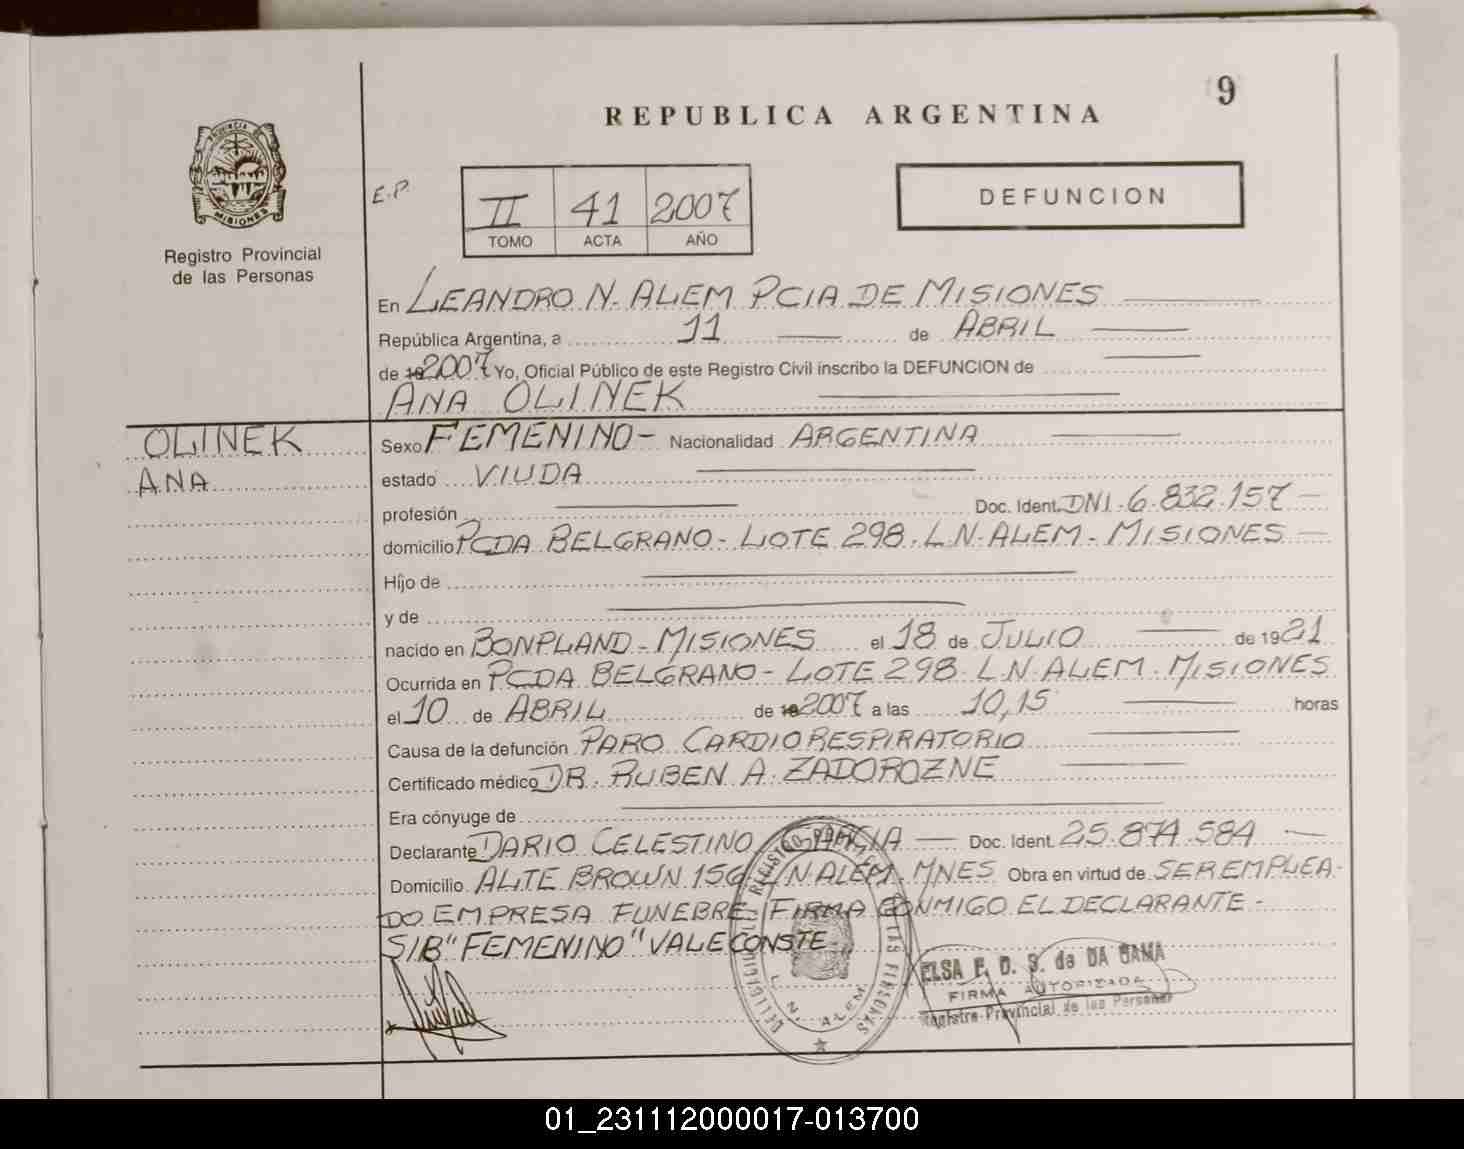 9
REPUBLICA ARGENTINA
PROVINCIA DE
MISIONES
Registro Provincial
de las Personas
E.P.
II 41 2007
TOMO ACTA AÑO
DEFUNCION
En LEANDRO N. ALEM PCIA DE MISIONES
República Argentina, a 11 de ABRIL
de 19 2007 Yo, Oficial Público de este Registro Civil inscribo la DEFUNCION de
ANA OLINEK
OLINEK
ANA
Sexo FEMENINO - Nacionalidad ARGENTINA
estado VIUDA
profesión Doc. Ident. DNI. 6.832.157 -
domicilio PCDA BELGRANO - LOTE 298. L.N. ALEM - MISIONES -
Hijo de
y de
nacido en BONPLAND - MISIONES el 18 de JULIO de 1921
Ocurrida en PCDA BELGRANO - LOTE 298. L.N. ALEM. MISIONES
el 10 de ABRIL de 19 2007 a las 10,15 horas
Causa de la defunción PARO CARDIORESPIRATORIO
Certificado médico DR. RUBEN A. ZADOROZNE
Era cónyuge de
Declarante DARIO CELESTINO GARCIA - Doc. Ident. 25.874.584 -
Domicilio ALTE BROWN 156 L N ALEM. MNES Obra en virtud de SER EMPLEA-
DO EMPRESA FUNEBRE. FIRMA CONMIGO EL DECLARANTE -
S/B "FEMENINO" VALE CONSTE
REGISTRO DE LAS PERSONAS
L. N. ALEM
ELSA F. D. S. de DA GAMA
FIRMA AUTORIZADA
Registro Provincial de las Personas
01_231112000017-013700